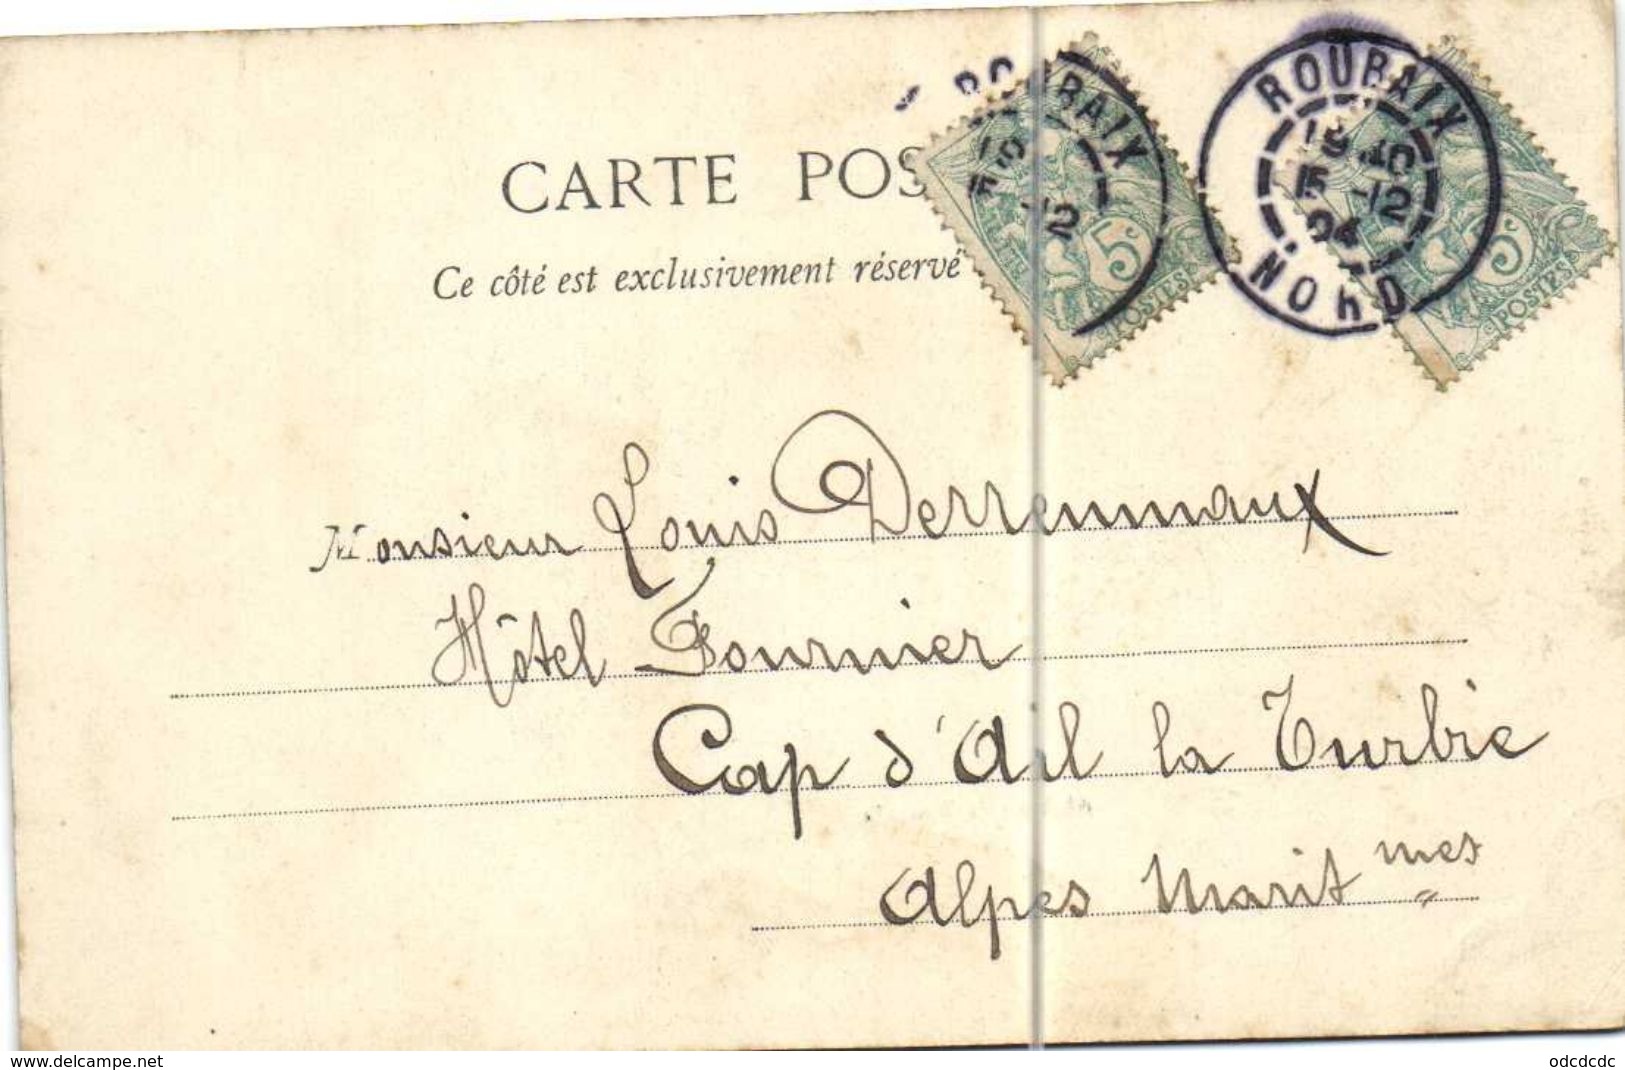 CARTE POS
Ce côté est exclusivement réservé
ROUBAIX
-12
5c
POSTES
ROUBAIX
5 -12
04
NORD
5c
POSTES
Monsieur Louis Derrenmaux
Hôtel Fournier
Cap d'Ail la Turbie
Alpes Maritmes
www.delcampe.net
odcdcdc